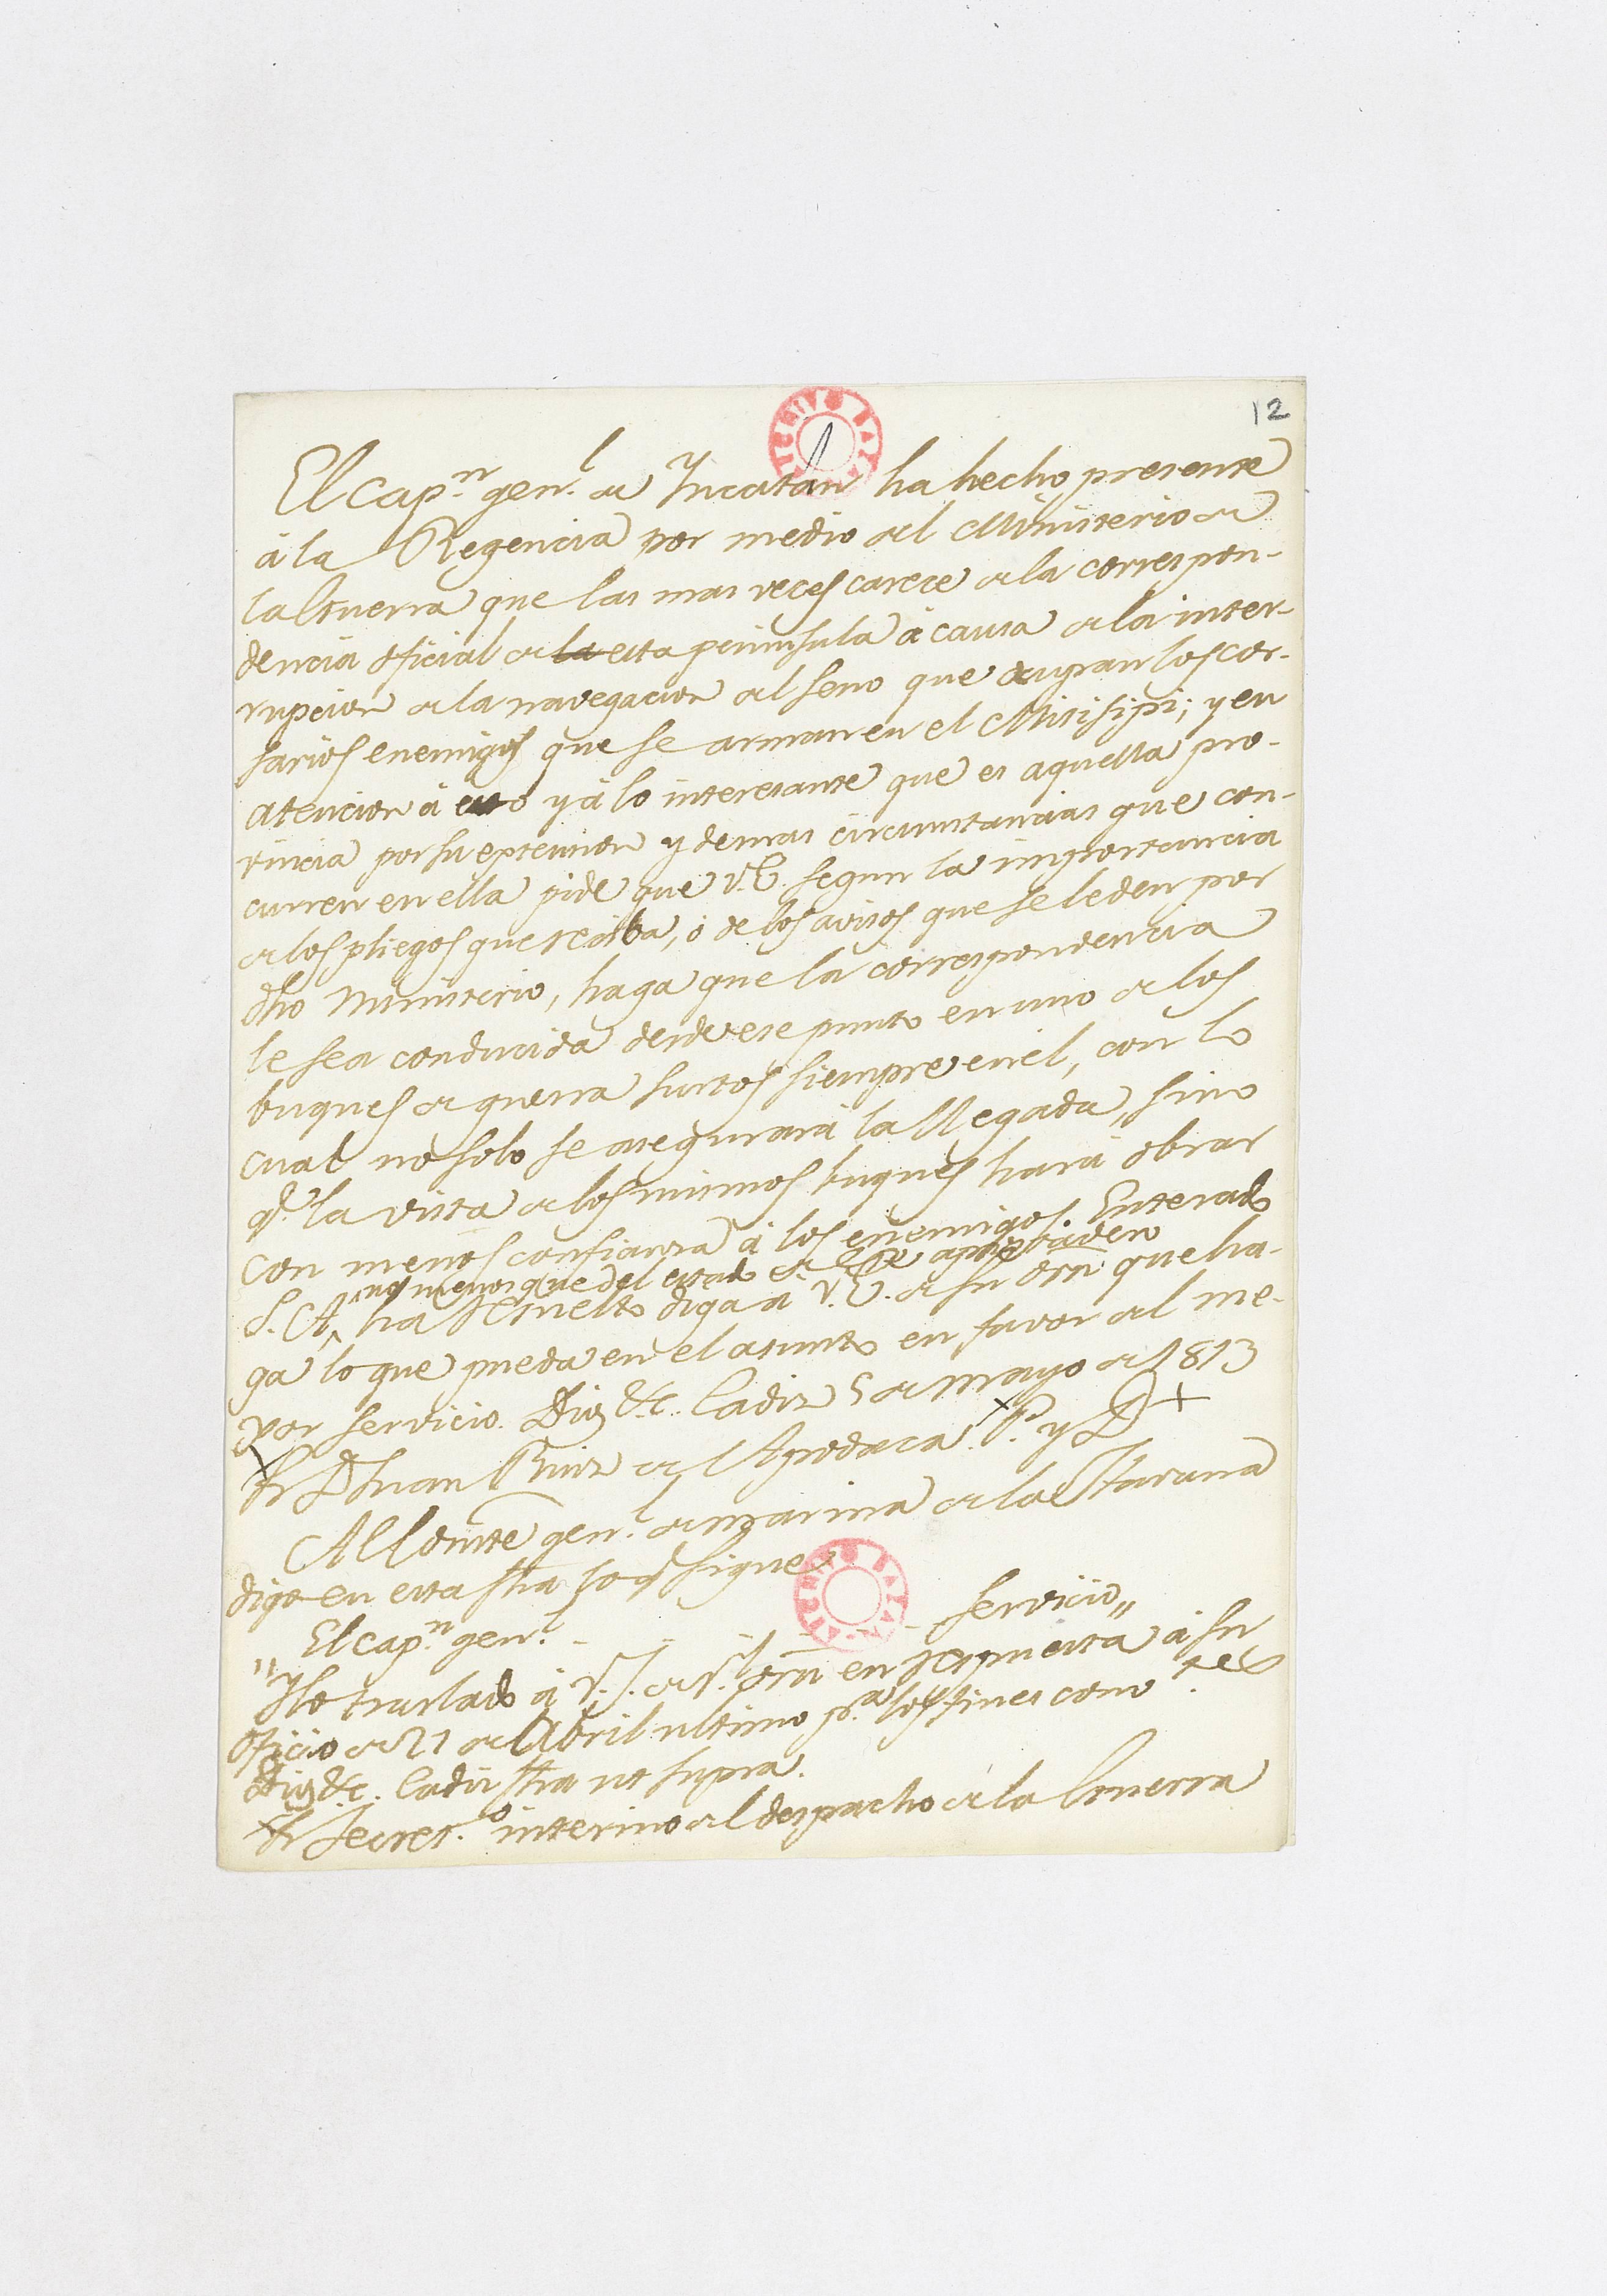 12
El cap.n gen.l de Yucatan ha hecho presente
á la Regencia por medio del Ministerio de
la Guerra que las mas veces carece de la correspon-
dencia oficial de la esta peninsula á causa de la inter-
rupcion de la navegacion del seno que los cor-
sarios enemigos que se arman en el Misisipi; y en
atencion á esto y á lo interesante que es aquella pro-
vincia por su extension y demas circunstancias que con-
curren en ella pide que V.E. segun la importancia
de los pliegos que reciba, ó de los avisos que se le den por
dho Ministerio, haga que la correspondencia
le sea conducida desde ese punto en uno de los
buques de guerra surtos siempre en el, con lo
cual no solo se asegurará la llegada, sino
q.e la vista de los mismos buques hará obrar
con menos confianza á los enemigos. Enterado
no menos que del estado de ese apostadero
S.A. ha resuelto diga á V.E. de su orn que ha-
ga lo que pueda en el asunto en favor del me-
yor servicio. Dios &c. Cadiz 5 de mayo de 1813
Sr D Juan Ruiz de Apodaca. P. y D
Al Comte gen.l de marina de la Havana
digo en esta fha lo q.e sigue
"El cap.n gen.l - - - - - servicio"
Y lo traslado á V.S. de R.l orn en respuesta á su
oficio de 21 de Abril ultimo p.a los fines conv.tes
Dios &c. Cadiz fha ut supra.
Sr Secret.o interino del despacho de la Guerra
ARCHIVO BAZAN
ARCHIVO BAZAN